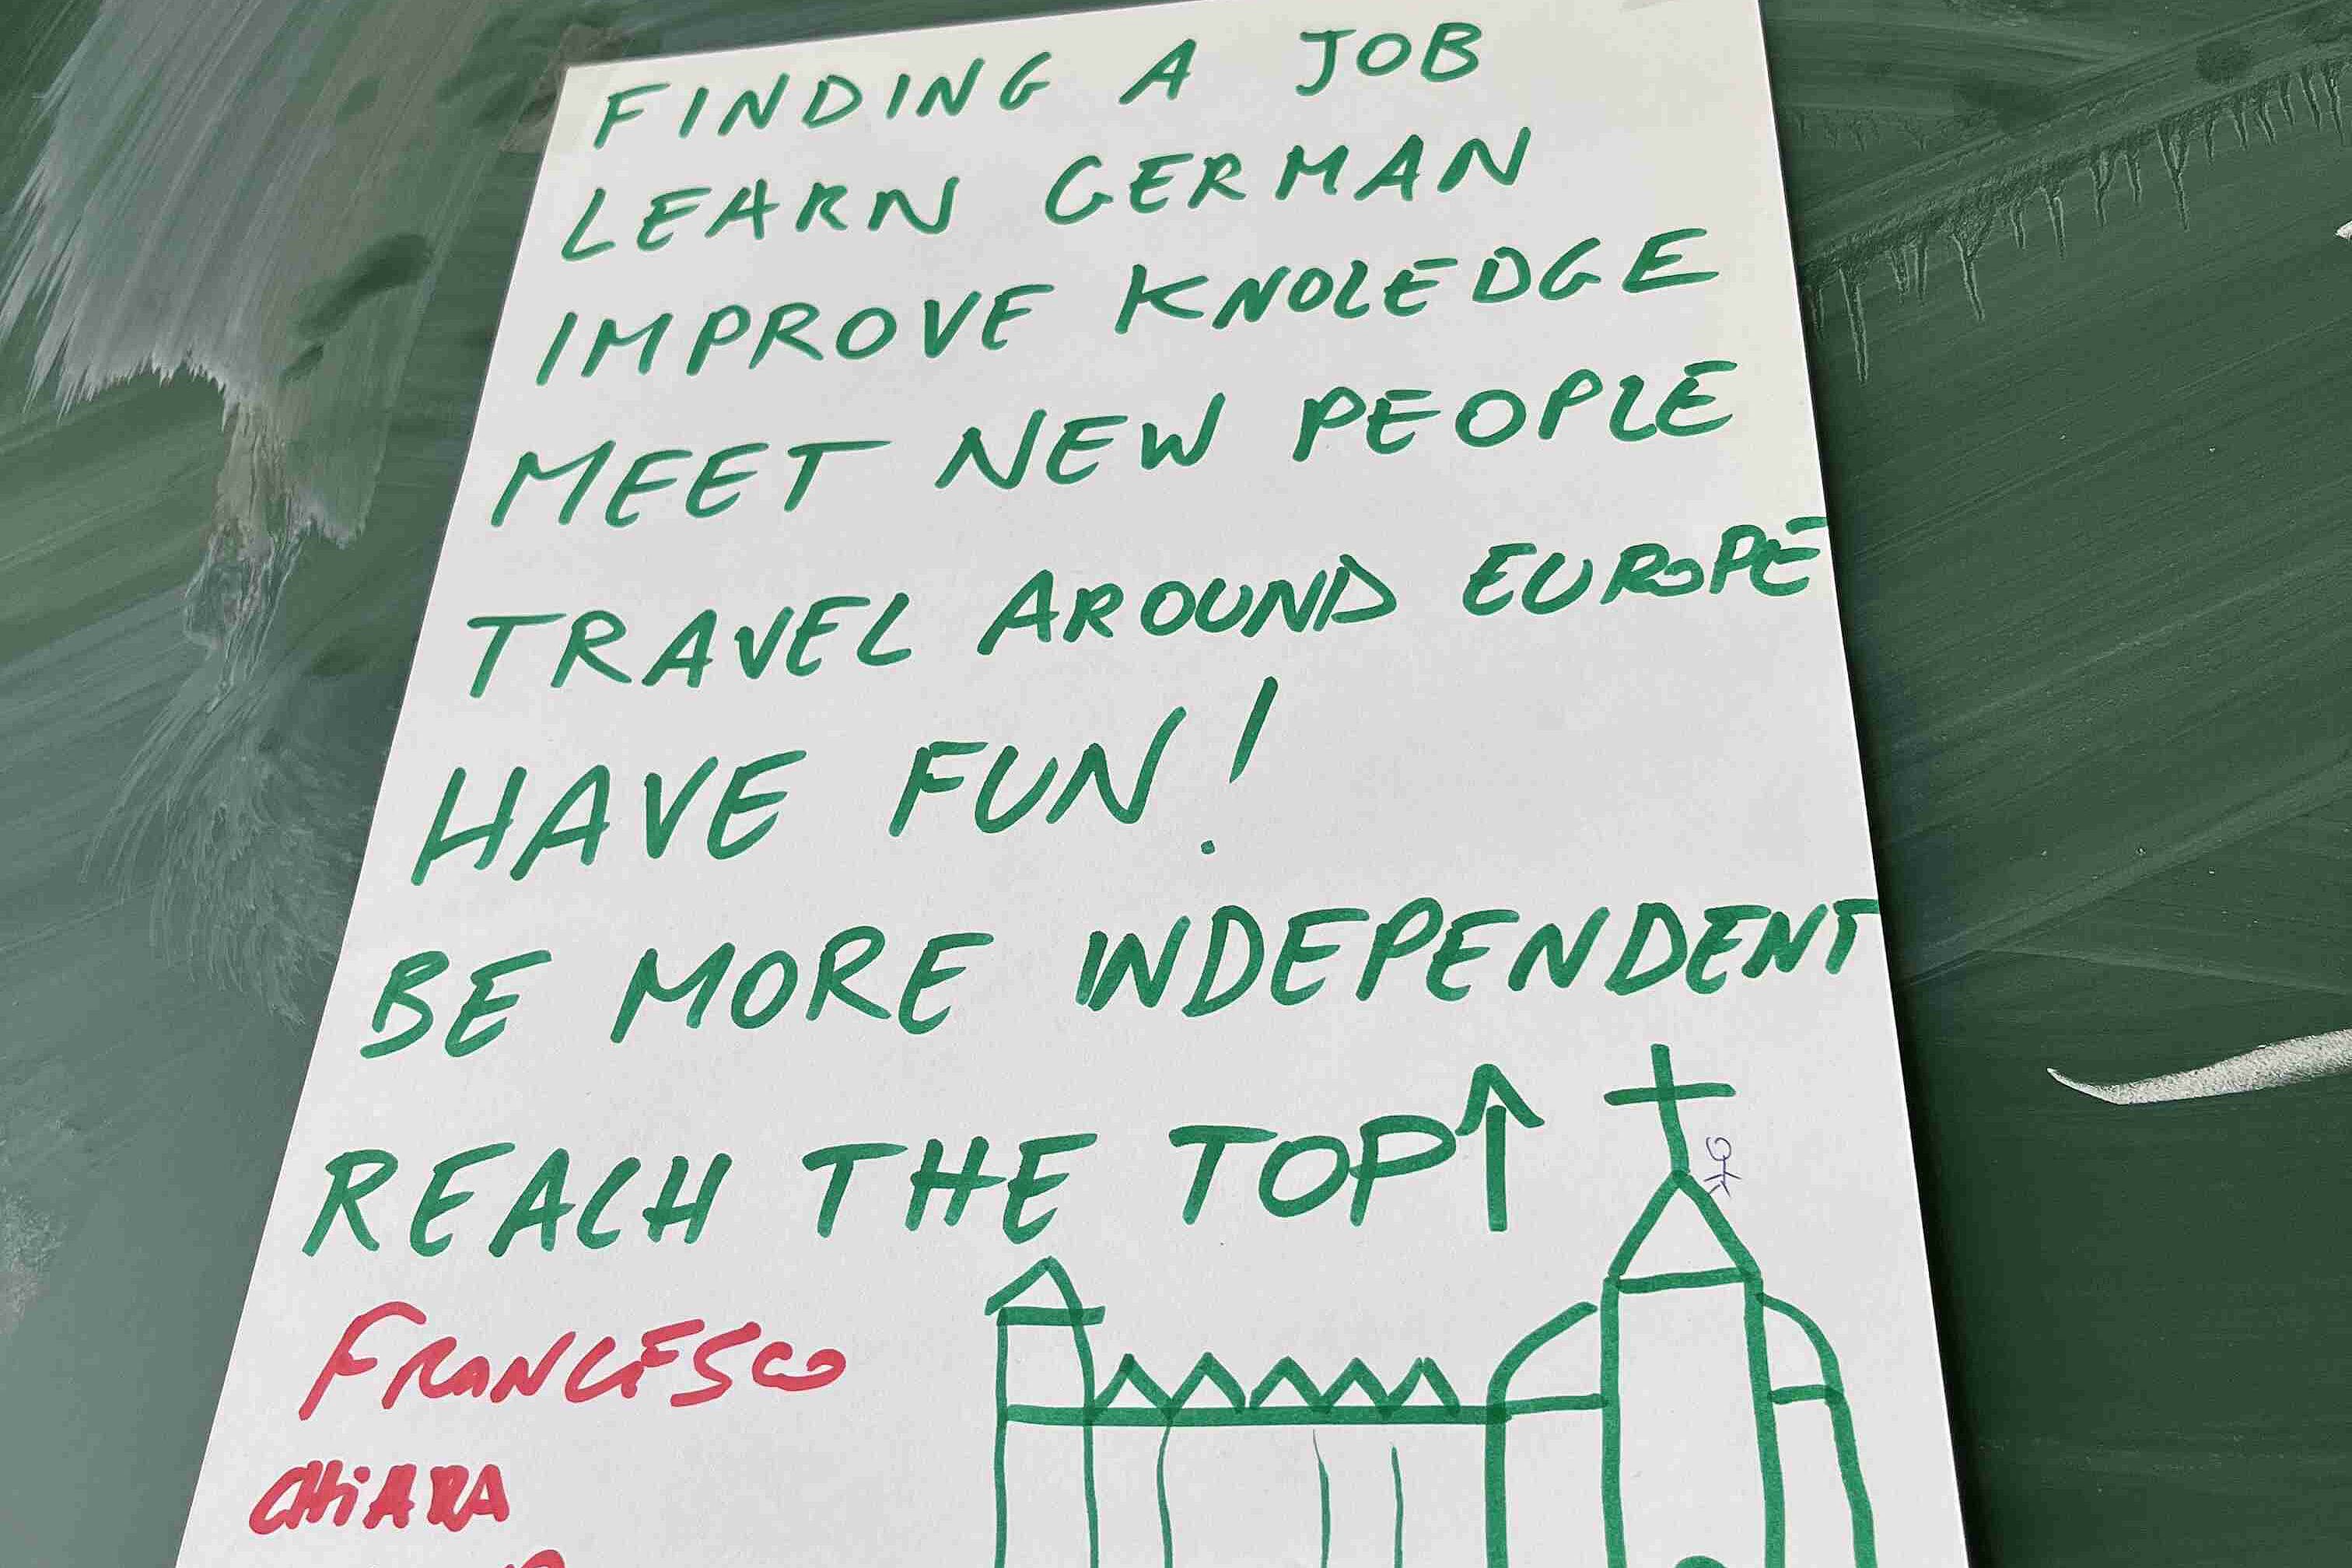 FINDING A JOB
LEARN GERMAN
IMPROVE KNOLEDGE
MEET NEW PEOPLE
TRAVEL AROUND EUROPE
HAVE FUN!
BE MORE INDEPENDENT
REACH THE TOP↑
FRANCESCO
CHiARA